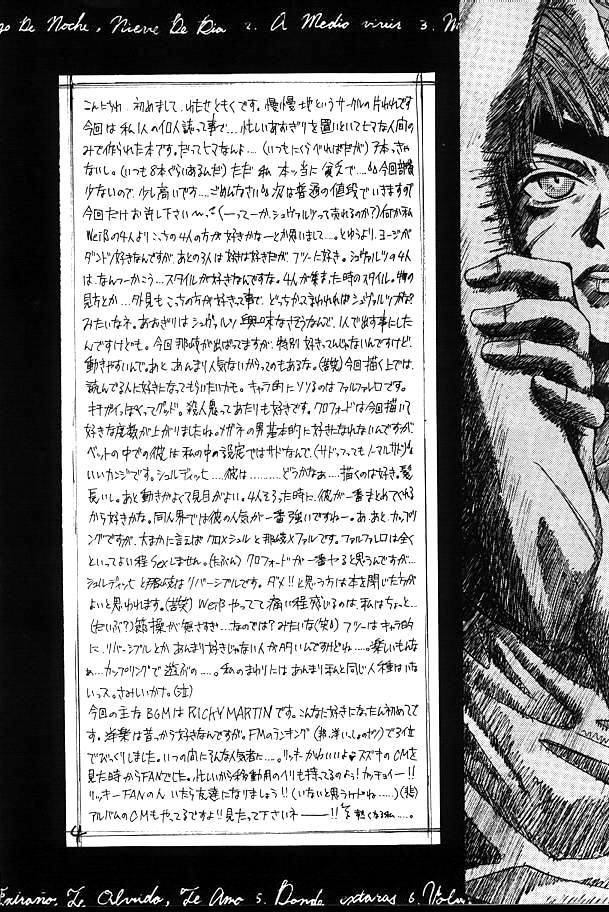 go De Noche, Nieve De Dia 2. A Medio vivir 3. M
こんにちわ 初めまして、
今回は 私1人の個人誌って事で…忙しいあおぎりを置いといてヒマな人間の
みで作られた本です。だってヒマなんよ…(いつもにくらべればだが)
ないし。(いつも8本ぐらいあるんだ) ただ 私 本当に貧乏で…
少ないので、少し高いです…ごめんなさい 次は普通の値段でいきますので
今回だけお許し下さい〜 (一ってーか、シュヴァルツって売れるのか?) 何か私
Weißの4人よりこっちの4人の方が好きかなーとか思いまして…。とゆうより、ヨージが
ダントツ好きなんですが、あとの3人は 好きだが、フツーに好き。シュヴァルツの4人
は、なんつーかこう…スタイルが好きなんですな。4人が集まった時のスタイル。物の
見方とか…外見も こっちの方が好きって事で、どっちかってまわれればシュヴァルツかな
みたいなネ。あおぎりはシュヴァルツ 興味なさそうなんで、1人で出す事にした
んですけども。今回 那岐が出ばってますが、特別 好きってんじゃないんですけど、
動きやすいんで。あと、あんまり人気ないからってのもあるな。(苦笑) 今回描く上では、
読んでる人に好きになってもらいたいカモ。キャラ的にソソるのはファルファレロです。
キチガイっぽくってグッド。殺人鬼ってあたりも好きです。クロフォードは今回描いて
好きな度数が上がりましたね。メガネの男 基本的に好きになれないんですが
ベットの中での彼は 私の中の設定ではサドなんで、(サドっつってもノーマルサド)
いいカンジです。シュルディッヒ…彼は………どうかなぁ…描くのは好き。髪
長いし。あと動きがよくて見目がよい。4人そろった時に、彼が一番まとめてくれる
から好きかな。同人界では彼の人気が一番強いですねー。あ、あと、カップリ
ングですが、大まかに言えば クロ×シュルと那岐×ファルです。ファルファレロは全く
といってよい程 Sexしません。(たぶん) クロフォードが一番ヤると思うんですが…
シュルディッヒと那岐は リバーシブルです。ダメ!!と思う方は本を閉じた方が
よいと思われます。(苦笑) Weißやってて 痛い程感じるのは、私はちょっと…
(だいぶ?) 節操が無さすぎ…なのでは? みたいな(笑) フツーは キャラ的
に、リバーシブルとか あんまり好きじゃない人が多いんですけどね…。楽しいもんな
ぁ…カップリングで遊ぶの…。私のまわりには あんまり私と同じ人種はいな
いっス。さみしいかナ。(泣)
今回の主な BGMは RICKY MARTIN です。こんなに好きになったん初めてで
す。洋楽は昔っから好きなんですが。FMのランキングで3位
でびっくりしました。いつの間にそんな人気者に…。リッキーかわいいよ♥ スズキのCMを
見た時からFANでした。忙しいから移動用のヘリも持ってるのよう! カッチョイー!!
リッキーFANの人 いたら友達になりましょう!! (いないと思うケドね……)(悲)
アルバムのCMもやってるですよ!! 見たって下さいネ――!!
4
Extraño, Te Olvido, Te Amo 5. Donde estaras 6. Volv